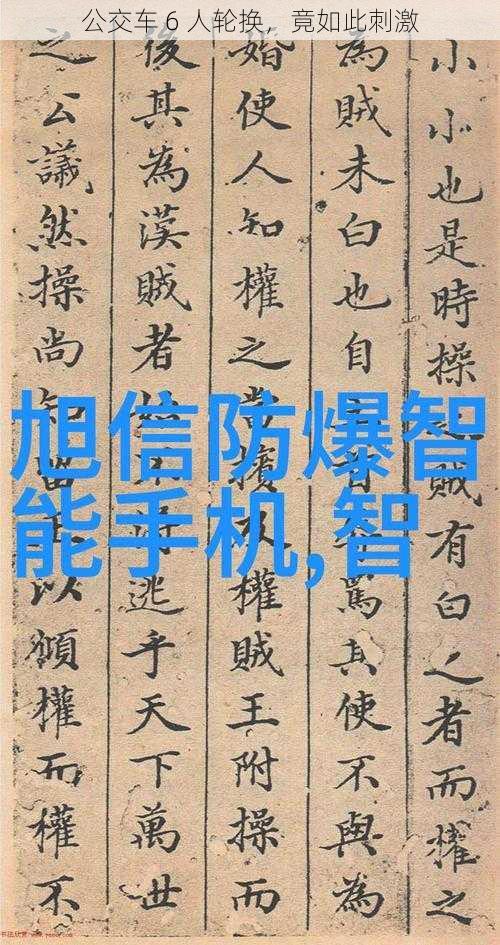 公交车 6 人轮换，竟如此刺激
小小也是時操賊有白人者而權之
為賊未白也自罵其使不與為
婚使人知權之當擯權賊王附操而
後其為漢賊者逃乎天下萬世
之公議然操尚知以傾權而權不
旭信防爆智
能手机,智